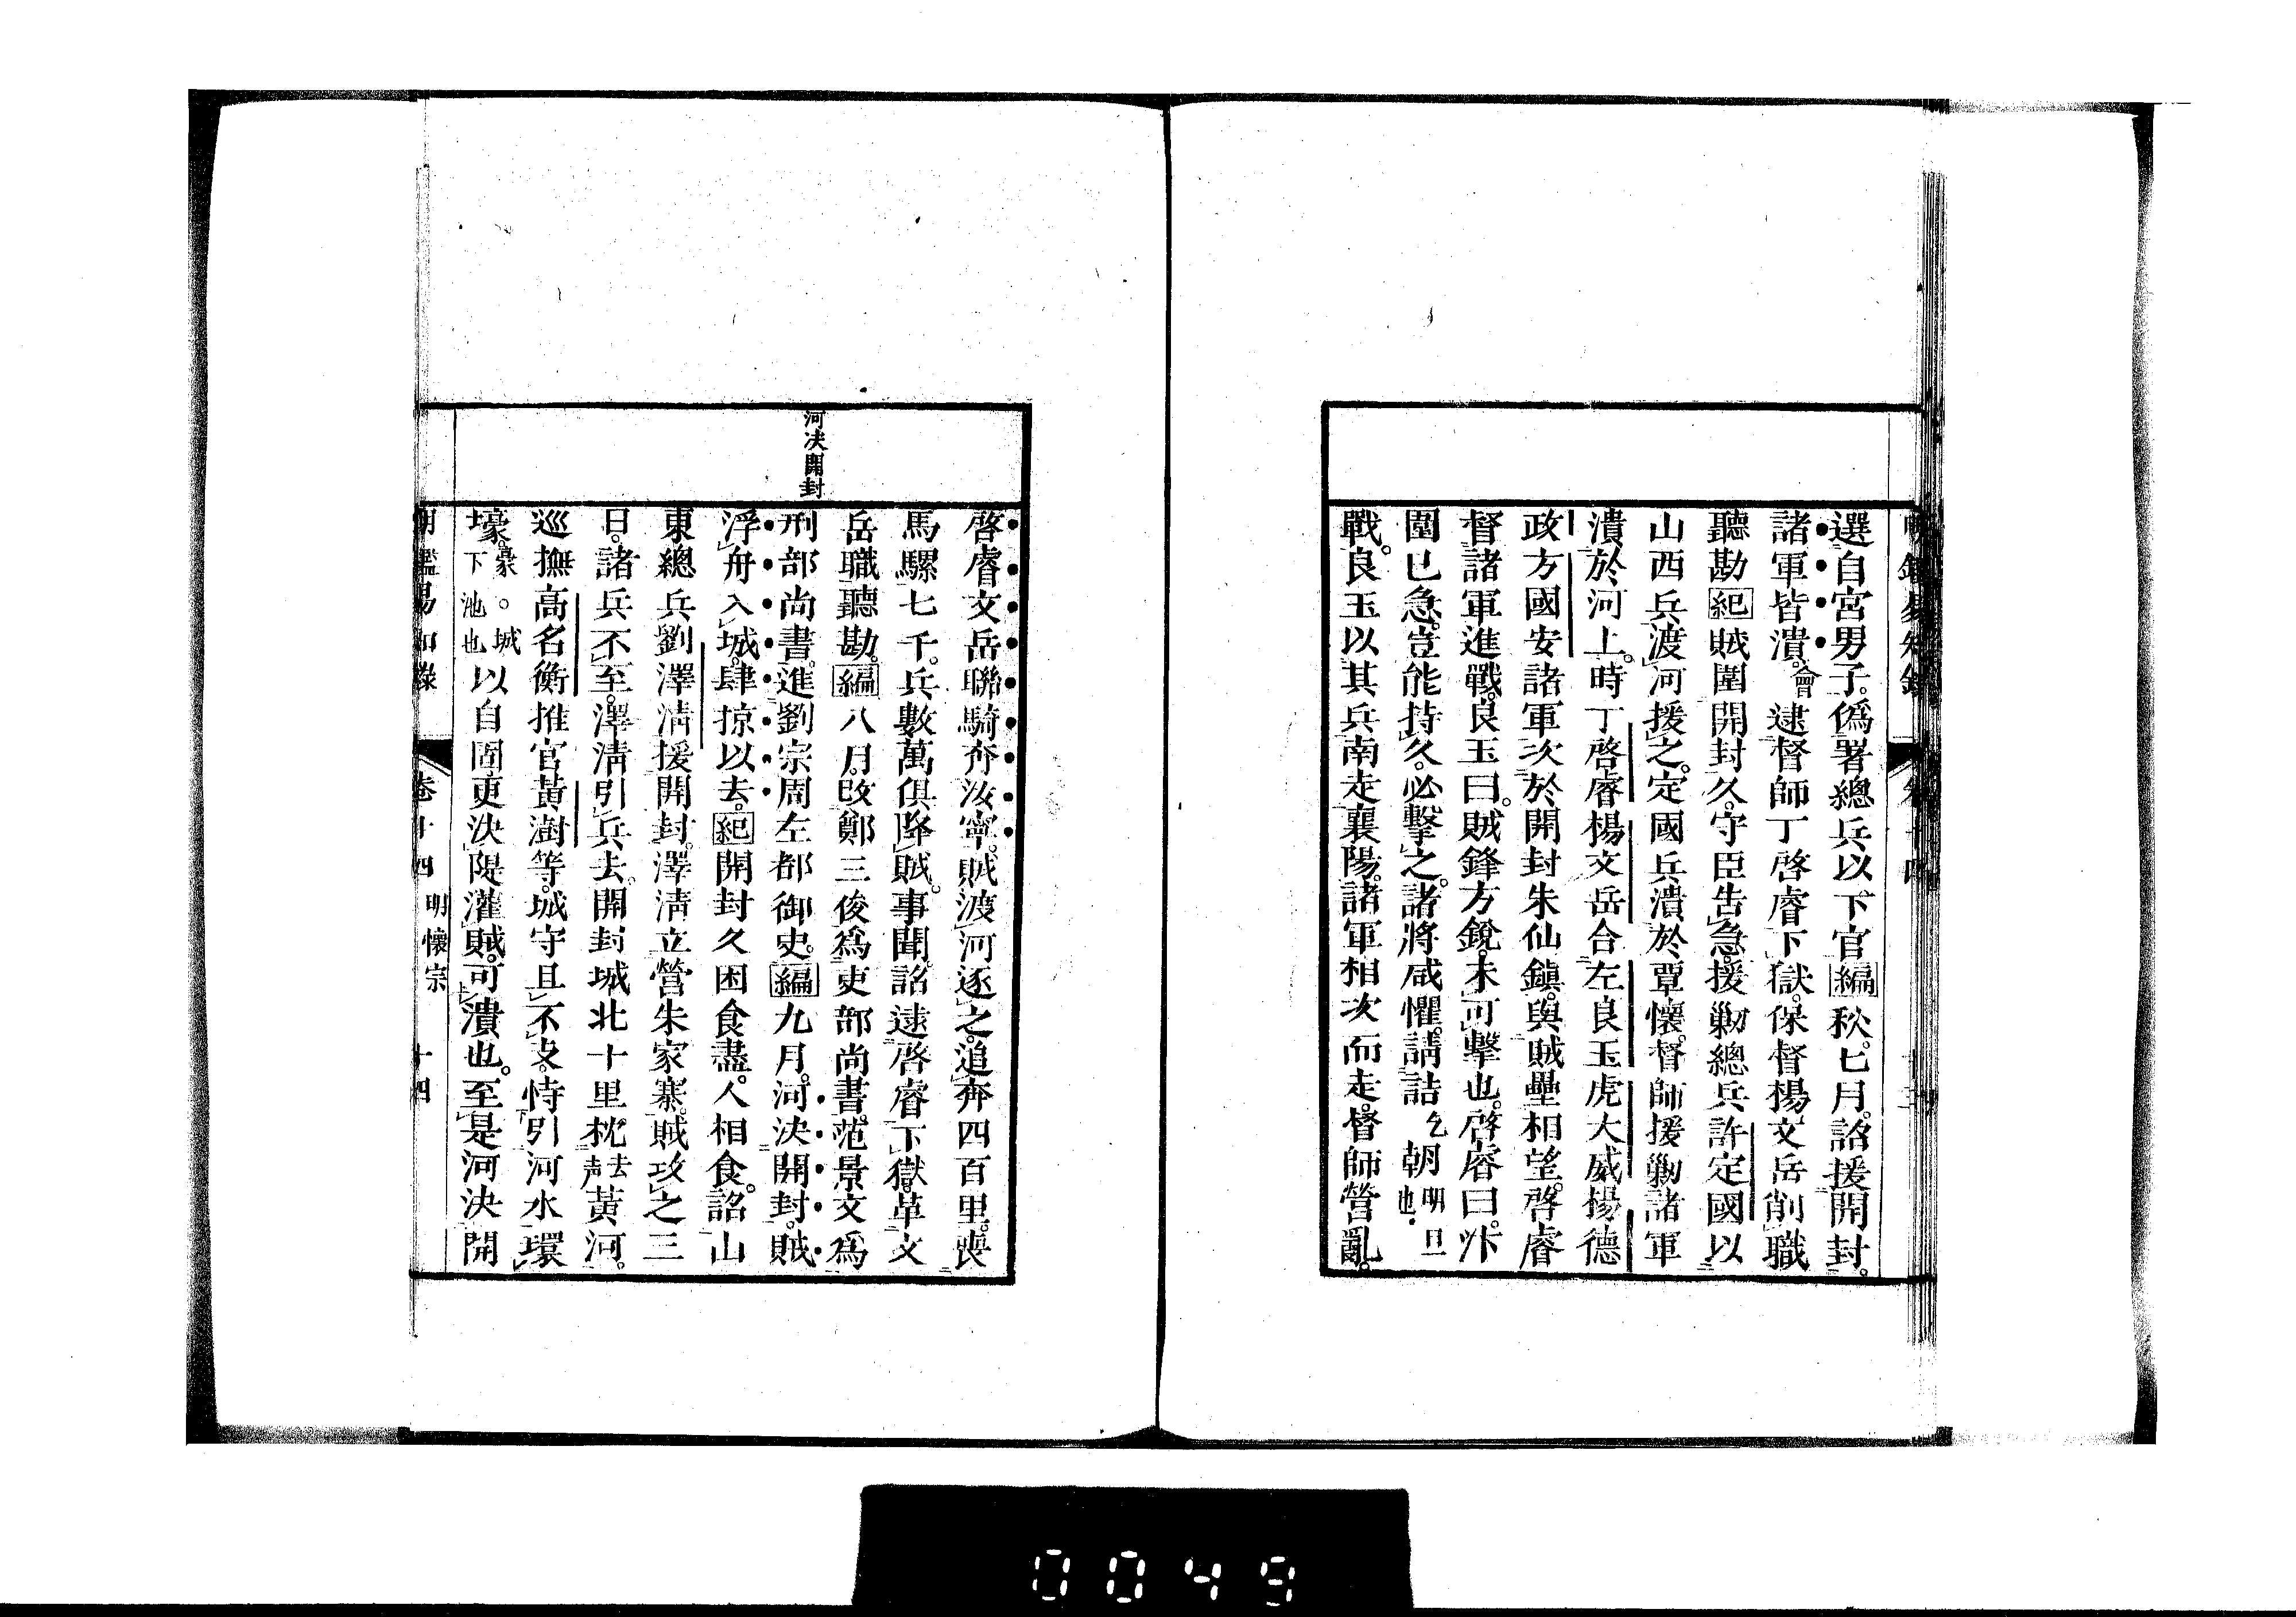 明鑑易知錄 卷十四
選自宮男子。僞署總兵以下官編秋。七月。詔援開封。
諸軍皆潰。會逮督師丁啓睿下獄。保督楊文岳削職
聽勘紀賊圍開封久。守臣告急。援勦總兵許定國以
山西兵渡河援之。定國兵潰於覃懷。督師援勦諸軍
潰於河上。時丁啓睿楊文岳合左良玉虎大威楊德
政方國安諸軍次於開封朱仙鎮。與賊壘相望。啓睿
督諸軍進戰。良玉曰。賊鋒方銳。未可擊也。啓睿曰。汴
圍已急。豈能持久。必擊之。諸將咸懼。請詰乞朝明旦也
戰。良玉以其兵南走襄陽。諸軍相次而走。督師營亂。
啓睿文岳聯騎奔汝寧。賊渡河逐之。追奔四百里。喪
馬騾七千。兵數萬俱降賊。事聞。詔逮啓睿下獄。革文
岳職聽勘。編八月。改鄭三俊爲吏部尚書。范景文爲
河決開封
刑部尚書。進劉宗周左都御史。編九月。河決開封。賊
浮舟入城。肆掠以去。紀開封久困食盡。人相食。詔山
東總兵劉澤淸援開封。澤淸立營朱家寨。賊攻之三
日。諸兵不至。澤淸引兵去。開封城北十里枕去聲黃河。
巡撫高名衡推官黃澍等。城守且不支。恃引河水環
壕。豪。城下池也以自固更決隄灌賊。可潰也。至是河決開
明鑑易知錄 卷十四 明懷宗 十四